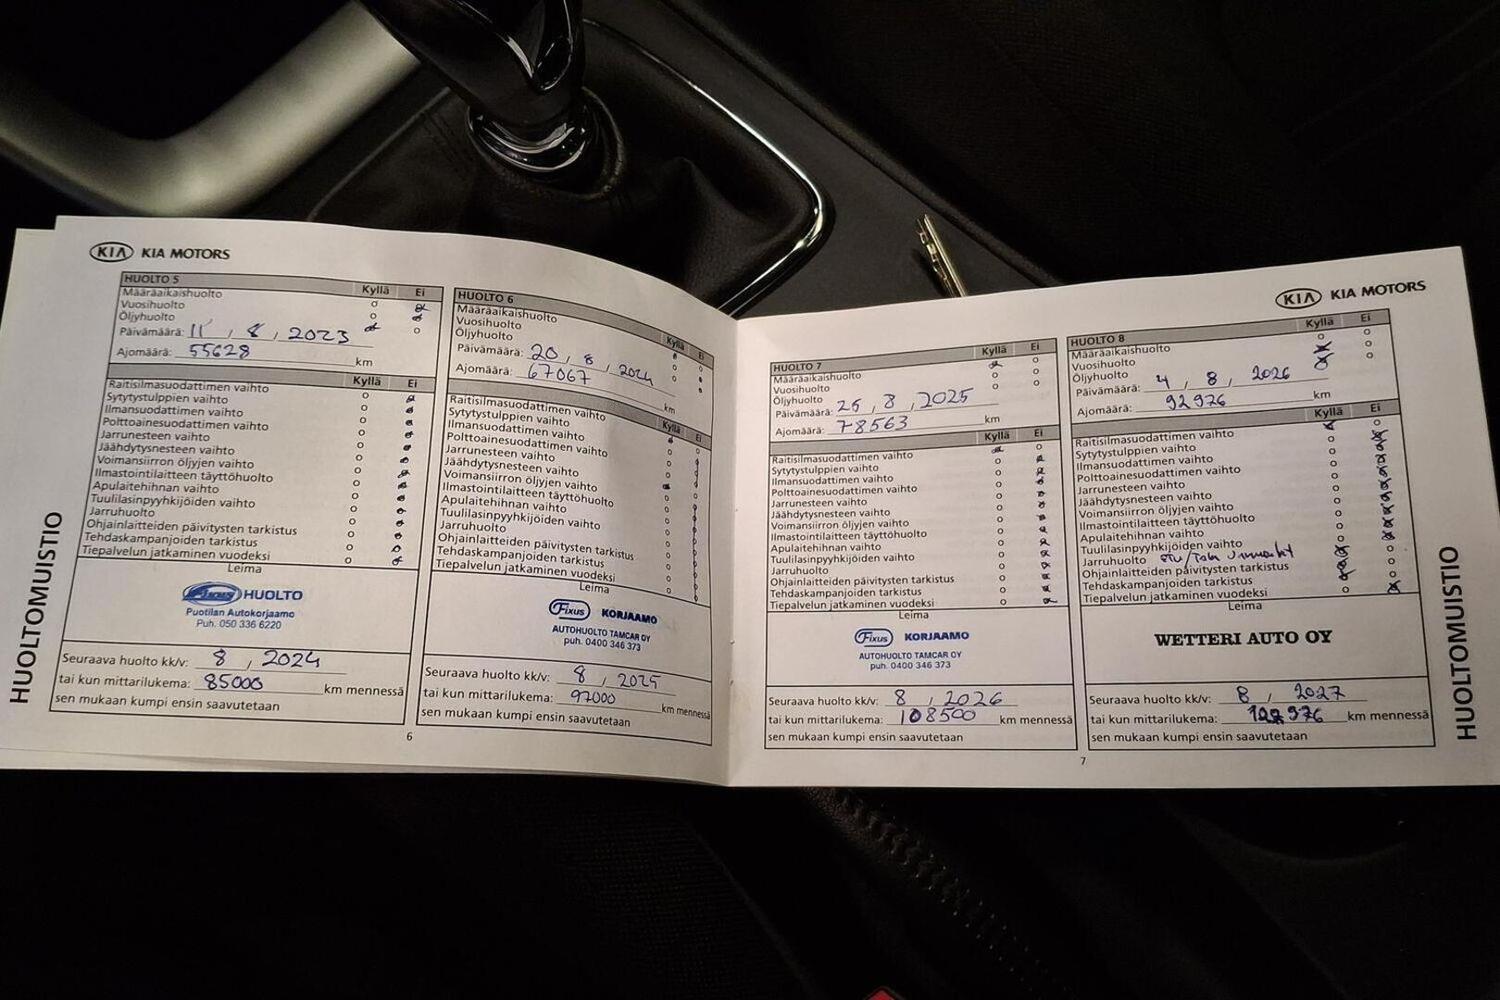 KIA KIA MOTORS
HUOLTO 5
Kyllä Ei
Määräaikaishuolto
Vuosihuolto
Öljyhuolto
Päivämäärä: 11 , 8 , 2023
Ajomäärä: 55628 km
Kyllä Ei
Raitisilmasuodattimen vaihto
Sytytystulppien vaihto
Ilmansuodattimen vaihto
Polttoainesuodattimen vaihto
Jarrunesteen vaihto
Jäähdytysnesteen vaihto
Voimansiirron öljyjen vaihto
Ilmastointilaitteen täyttöhuolto
Apulaitehihnan vaihto
Tuulilasinpyyhkijöiden vaihto
Jarruhuolto
Ohjainlaitteiden päivitysten tarkistus
Tehdaskampanjoiden tarkistus
Tiepalvelun jatkaminen vuodeksi
Leima
Fixus HUOLTO
Puotilan Autokorjaamo
Puh. 050 336 6220
Seuraava huolto kk/v: 8 , 2024
tai kun mittarilukema: 85000 km mennessä
sen mukaan kumpi ensin saavutetaan
HUOLTO 6
Kyllä Ei
Määräaikaishuolto
Vuosihuolto
Öljyhuolto
Päivämäärä: 20 , 8 , 2024
Ajomäärä: 67067 km
Kyllä Ei
Raitisilmasuodattimen vaihto
Sytytystulppien vaihto
Ilmansuodattimen vaihto
Polttoainesuodattimen vaihto
Jarrunesteen vaihto
Jäähdytysnesteen vaihto
Voimansiirron öljyjen vaihto
Ilmastointilaitteen täyttöhuolto
Apulaitehihnan vaihto
Tuulilasinpyyhkijöiden vaihto
Jarruhuolto
Ohjainlaitteiden päivitysten tarkistus
Tehdaskampanjoiden tarkistus
Tiepalvelun jatkaminen vuodeksi
Leima
Fixus KORJAAMO
AUTOHUOLTO TAMCAR OY
puh. 0400 346 373
Seuraava huolto kk/v: 8 , 2025
tai kun mittarilukema: 97000 km mennessä
sen mukaan kumpi ensin saavutetaan
HUOLTOMUISTIO
6
KIA KIA MOTORS
HUOLTO 7
Kyllä Ei
Määräaikaishuolto
Vuosihuolto
Öljyhuolto
Päivämäärä: 25 , 8 , 2025
Ajomäärä: 78563 km
Kyllä Ei
Raitisilmasuodattimen vaihto
Sytytystulppien vaihto
Ilmansuodattimen vaihto
Polttoainesuodattimen vaihto
Jarrunesteen vaihto
Jäähdytysnesteen vaihto
Voimansiirron öljyjen vaihto
Ilmastointilaitteen täyttöhuolto
Apulaitehihnan vaihto
Tuulilasinpyyhkijöiden vaihto
Jarruhuolto
Ohjainlaitteiden päivitysten tarkistus
Tehdaskampanjoiden tarkistus
Tiepalvelun jatkaminen vuodeksi
Leima
Fixus KORJAAMO
AUTOHUOLTO TAMCAR OY
puh. 0400 346 373
Seuraava huolto kk/v: 8 , 2026
tai kun mittarilukema: 108500 km mennessä
sen mukaan kumpi ensin saavutetaan
HUOLTO 8
Kyllä Ei
Määräaikaishuolto
Vuosihuolto
Öljyhuolto
Päivämäärä: 4 , 8 , 2026
Ajomäärä: 92976 km
Kyllä Ei
Raitisilmasuodattimen vaihto
Sytytystulppien vaihto
Ilmansuodattimen vaihto
Polttoainesuodattimen vaihto
Jarrunesteen vaihto
Jäähdytysnesteen vaihto
Voimansiirron öljyjen vaihto
Ilmastointilaitteen täyttöhuolto
Apulaitehihnan vaihto
Tuulilasinpyyhkijöiden vaihto
Jarruhuolto
Ohjainlaitteiden päivitysten tarkistus
Tehdaskampanjoiden tarkistus
Tiepalvelun jatkaminen vuodeksi
Leima
WETTERI AUTO OY
Seuraava huolto kk/v: 8 , 2027
tai kun mittarilukema: 122976 km mennessä
sen mukaan kumpi ensin saavutetaan
HUOLTOMUISTIO
7